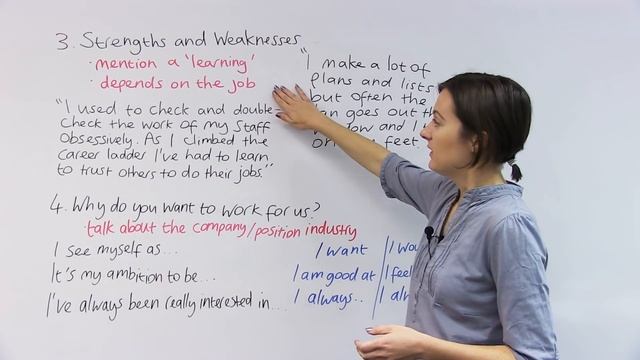 3. Strengths and Weaknesses
· mention a 'learning'
· depends on the job
"I used to check and double-
check the work of my staff
obsessively. As I climbed the
career ladder I've had to learn
to trust others to do their jobs."
"I make a lot of
plans and lists
but often the
goes out
and I
feet.
4. Why do you want to work for us?
· talk about the company/position industry
I see myself as...
It's my ambition to be...
I've always been really interested in...
I want
I am good at
I always..
I
I feel
I